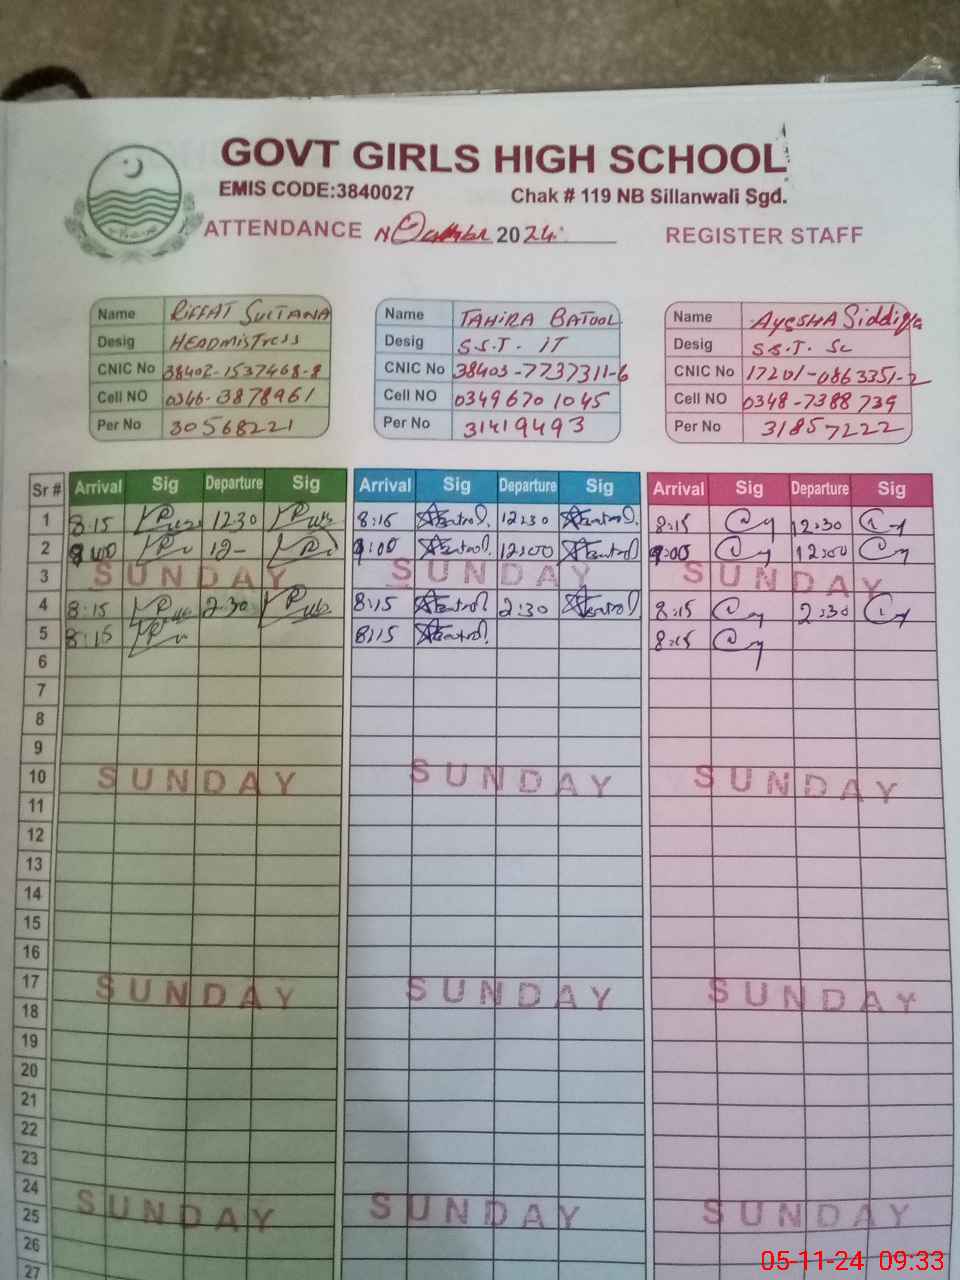 GOVT GIRLS HIGH SCHOOL
EMIS CODE:3840027 Chak # 119 NB Sillanwali Sgd.
ATTENDANCE 2024 REGISTER STAFF
Name RIFFAT SULTANA Name TAHIRA BATOOL Name AYESHA Siddiqa
Desig HEADMISTRESS Desig S.S.T. IT Desig S.S.T. Sc
CNIC No 38402-1537468-8 CNIC No 38403-7737311-6 CNIC No 17201-0863351-2
Cell NO 0346-3878961 Cell NO 0349 670 1045 Cell NO 0348-7388739
Per No 30568221 Per No 31419493 Per No 31857222
Sr # Arrival Sig Departure Sig Arrival Sig Departure Sig Arrival Sig Departure Sig
1 8:15 1230 8:15 12:30 8:15 12:30
2 9:00 12- 9:00 12:00 9:00 12:00
3 SUNDAY SUNDAY SUNDAY
4 8:15 2:30 8:15 2:30 8:15 2:30
5 8:15 8:15 8:15
6
7
8
9
10 SUNDAY SUNDAY SUNDAY
11
12
13
14
15
16
17 SUNDAY SUNDAY SUNDAY
18
19
20
21
22
23
24 SUNDAY SUNDAY SUNDAY
25
26
27
05-11-24 09:33